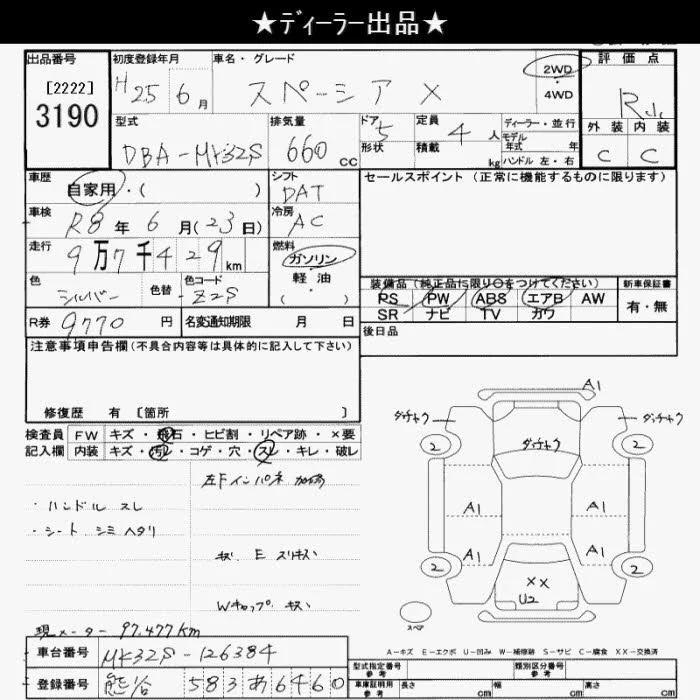 ★ディーラー出品★
出品番号
[2222]
3190
初度登録年月
H 25 6 月
車名・グレード
スペーシア X
2WD
・
4WD
評価点
R
外装 内装
C C
型式
DBA-MK32S
排気量
660 cc
ドア 5
形状
定員 4 人
積載 kg
ディーラー・並行
モデル
年式 年
ハンドル 左・右
車歴
自家用・( )
シフト
DAT
セールスポイント (正常に機能するものに限ります)
車検
R8 年 6 月(23日)
冷房
AC
走行
9万7千429 km
燃料
ガソリン
・
軽油
( )
色
シルバー
色替
色コード
Z2S
装備品 (純正品に限り○をつけてください)
PS PW ABS エアB AW
SR ナビ TV カワ
新車保証書
有・無
R券 9770 円
名変通知期限 月 日
後日品
注意事項申告欄 (不具合内容等は具体的に記入して下さい)
修復歴 有 [箇所 ]
検査員
記入欄
FW キズ・飛石・ヒビ割・リペア跡・×要
内装 キズ・汚レ・コゲ・穴・スレ・キレ・破レ
左Fインパネ
・ハンドル スレ
・シート シミ ヘタリ
キズ E スリキズ
Wキャップ キズ
現メーター 97,477km
A1
ダッチャク
ダッチャク
ダッチャク
2
2
A1
A1
A1
A1
2
2
XX
U2
スペア
A-キズ E-エクボ U-凹み W-補修跡 S-サビ C-腐食 XX-交換済
車台番号 MK32S-126384
登録番号 熊谷 583 あ 6460
型式指定番号
参考
類別区分番号
参考
車庫証明用
参考
長さ cm
幅 cm
高さ cm